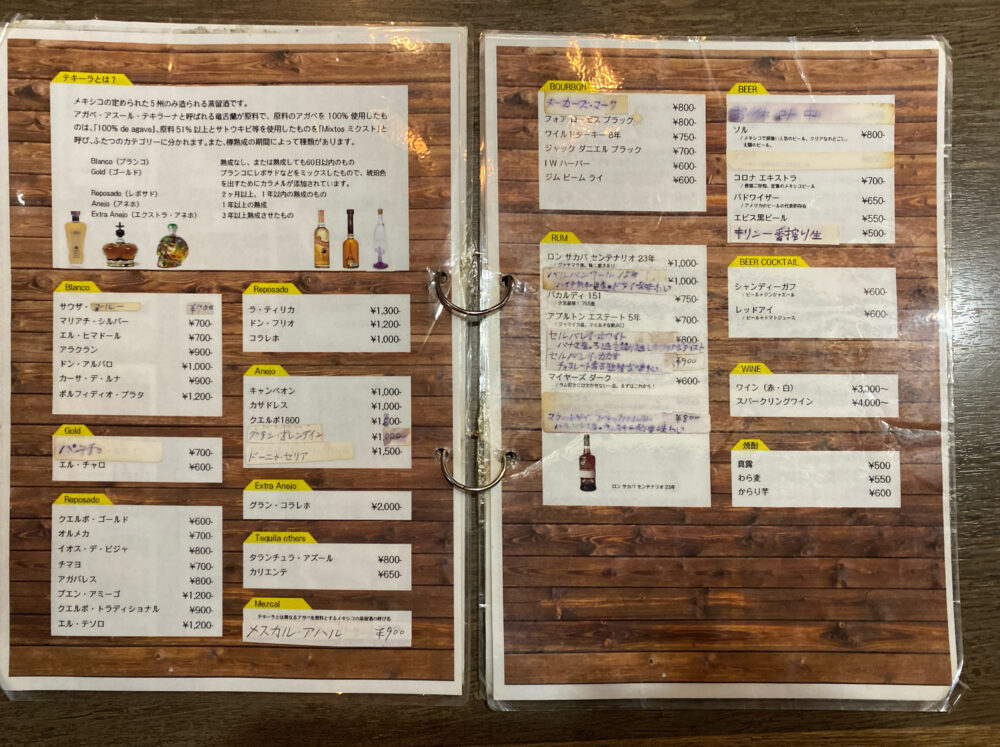 テキーラとは？
メキシコの定められた5州のみ造られる蒸留酒です。
アガベ・アスール・テキラーナと呼ばれる竜舌蘭が原料で、原料のアガベを100% 使用したも
のは、「100% de agave」、原料 51% 以上とサトウキビ等を使用したものを「Mixtos ミクスト」と
呼び、ふたつのカテゴリーに分かれます。また、樽熟成の期間によって種類があります。
Blanco（ブランコ） 熟成なし、または熟成しても60日以内のもの
Gold（ゴールド） ブランコにレポサドなどをミックスしたもので、琥珀色
を出すためにカラメルが添加されています。
Reposado（レポサド） 2ヶ月以上、1年以内の熟成のもの
Anejo（アネホ） 1年以上の熟成
Extra Anejo（エクストラ・アネホ） 3年以上熟成させたもの
Blanco
サウザ・ ¥700
マリアチ・シルバー ¥700-
エル・ヒマドール ¥700-
アラクラン ¥900-
ドン・アルバロ ¥1,000-
カーサ・デ・ルナ ¥900-
ポルフィディオ・プラタ ¥1,200-
Gold
パンチョ ¥700-
エル・チャロ ¥600-
Reposado
クエルボ・ゴールド ¥600-
オルメカ ¥700-
イオス・デ・ビジャ ¥800-
チマヨ ¥700-
アガバレス ¥800-
プエン・アミーゴ ¥1,200-
クエルボ・トラディショナル ¥900-
エル・テソロ ¥1,200-
Reposado
ラ・ティリカ ¥1,300-
ドン・フリオ ¥1,200-
コラレホ ¥1,000-
Anejo
キャンペオン ¥1,000-
カザドレス ¥1,000-
クエルボ1800
グラン・オレンダイン
ドーニャ・セリア ¥1,500-
Extra Anejo
グラン・コラレホ ¥2,000-
Tequila others
タランチュラ・アズール ¥800-
カリエンテ ¥650-
Mezcal
テキーラとは異なるアガベを原料とするメキシコの蒸留酒の呼び名
メスカル・アハル ¥900
BOURBON
メーカーズ・マーク ¥800-
フォア ローゼス ブラック ¥800-
ワイルドターキー 8年 ¥750-
ジャック ダニエル ブラック ¥700-
I W ハーパー ¥600-
ジム ビーム ライ ¥600-
RUM
ロン サカパ センテナリオ 23年 ¥1,000-
15年 ¥1,000-
バカルディ 151 ¥750-
アプルトン エステート 5年 ¥700-
/ジャマイカ産。マイルドな飲み口
セルバレイ・ホワイト ¥800-
セルバレイ・カカオ ¥900
マイヤーズ ダーク ¥600-
/ラム好きには欠かせない一品。まずはこれから！
¥800
ロン サカパ センテナリオ 23年
BEER
お休み中
ソル ¥800-
/メキシコで根強い人気のビール。クリアなのどごし、
コロナ エキストラ ¥700-
/皆様ご存知、定番のメキシコビール
バドワイザー ¥650-
/アメリカのビールの代表的存在
エビス黒ビール ¥550-
キリン一番搾り生 ¥500-
BEER COCKTAIL
シャンディーガフ ¥600-
/ビール+ジンジャエール
レッドアイ ¥600-
/ビール+トマトジュース
WINE
ワイン（赤・白） ¥3,000〜
スパークリングワイン ¥4,000〜
焼酎
真露 ¥500
わら麦 ¥550
からり芋 ¥600